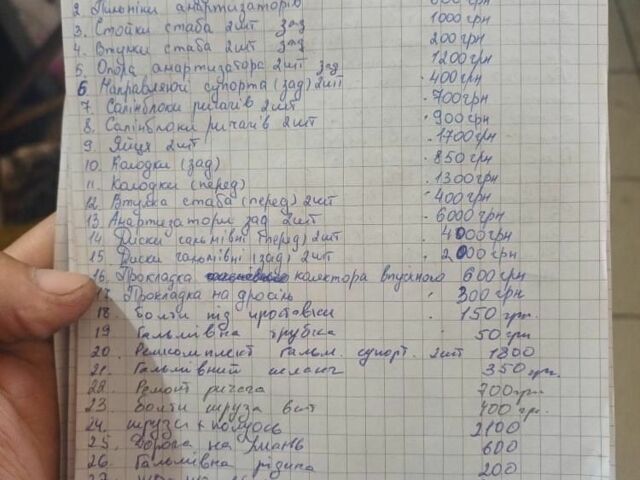 2. Пильніки амартизаторів 600 грн
3. Стойки стаба 2 шт зад 1000 грн
4. Втулки стаба 2 шт зад 200 грн
5. Опора амартизатора 2 шт зад 1200 грн
6 Направляючі супорта (зад) 2шт 400 грн
7. Салінблоки ричагів 2 шт 700 грн
8. Салінблоки ричагів 2 шт 900 грн
9 Яйця 2 шт 1700 грн
10. Колодки (зад) 850 грн
11. Колодки (перед) 1300 грн
12. Втулка стаба (перед) 2 шт 400 грн
13. Амартизатори зад 2шт 6000 грн
14. Диски гальмівні (перед) 2 шт 4000 грн
15. Диски гальмівні (зад) 2 шт 2000 грн
16. Прокладка колектора впускного 600 грн
17 Прокладка на дросіль 300 грн
18 Болти під проставки 150 грн.
19 Гальмівна трубка 50 грн
20. Ремкомплект гальм. супорт. 2 шт 1800
21. Гальмівний шланг 350 грн.
22. Ремонт ричага 700 грн.
23. Болти шруза 400 грн.
24. шрузи + полуось 2100
25. Дорога на Умань 600
26. Гальмівна рідина 200
27.